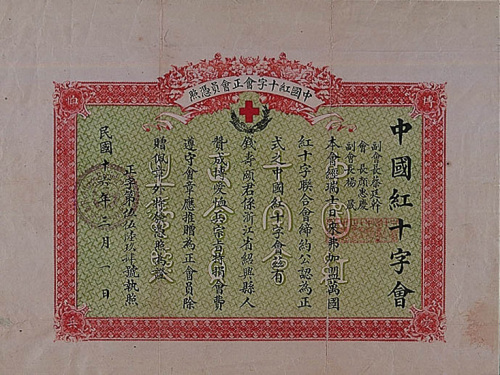 中國紅十字會正會員憑照
中國紅十字會
副會長蔡廷幹
會長顏惠慶
副會長楊晟
本會經瑞士日來弗加盟萬國
紅十字聯合會締約公認為正
式之中國紅十字會茲有
錢壽頤君係浙江省紹興縣人
贊成博愛恤兵宗旨特捐會費
遵守會章應推贈為正會員除
贈佩章外特給憑照為證
正字第伍伍陸玖肆號執照
民國十六年三月一日